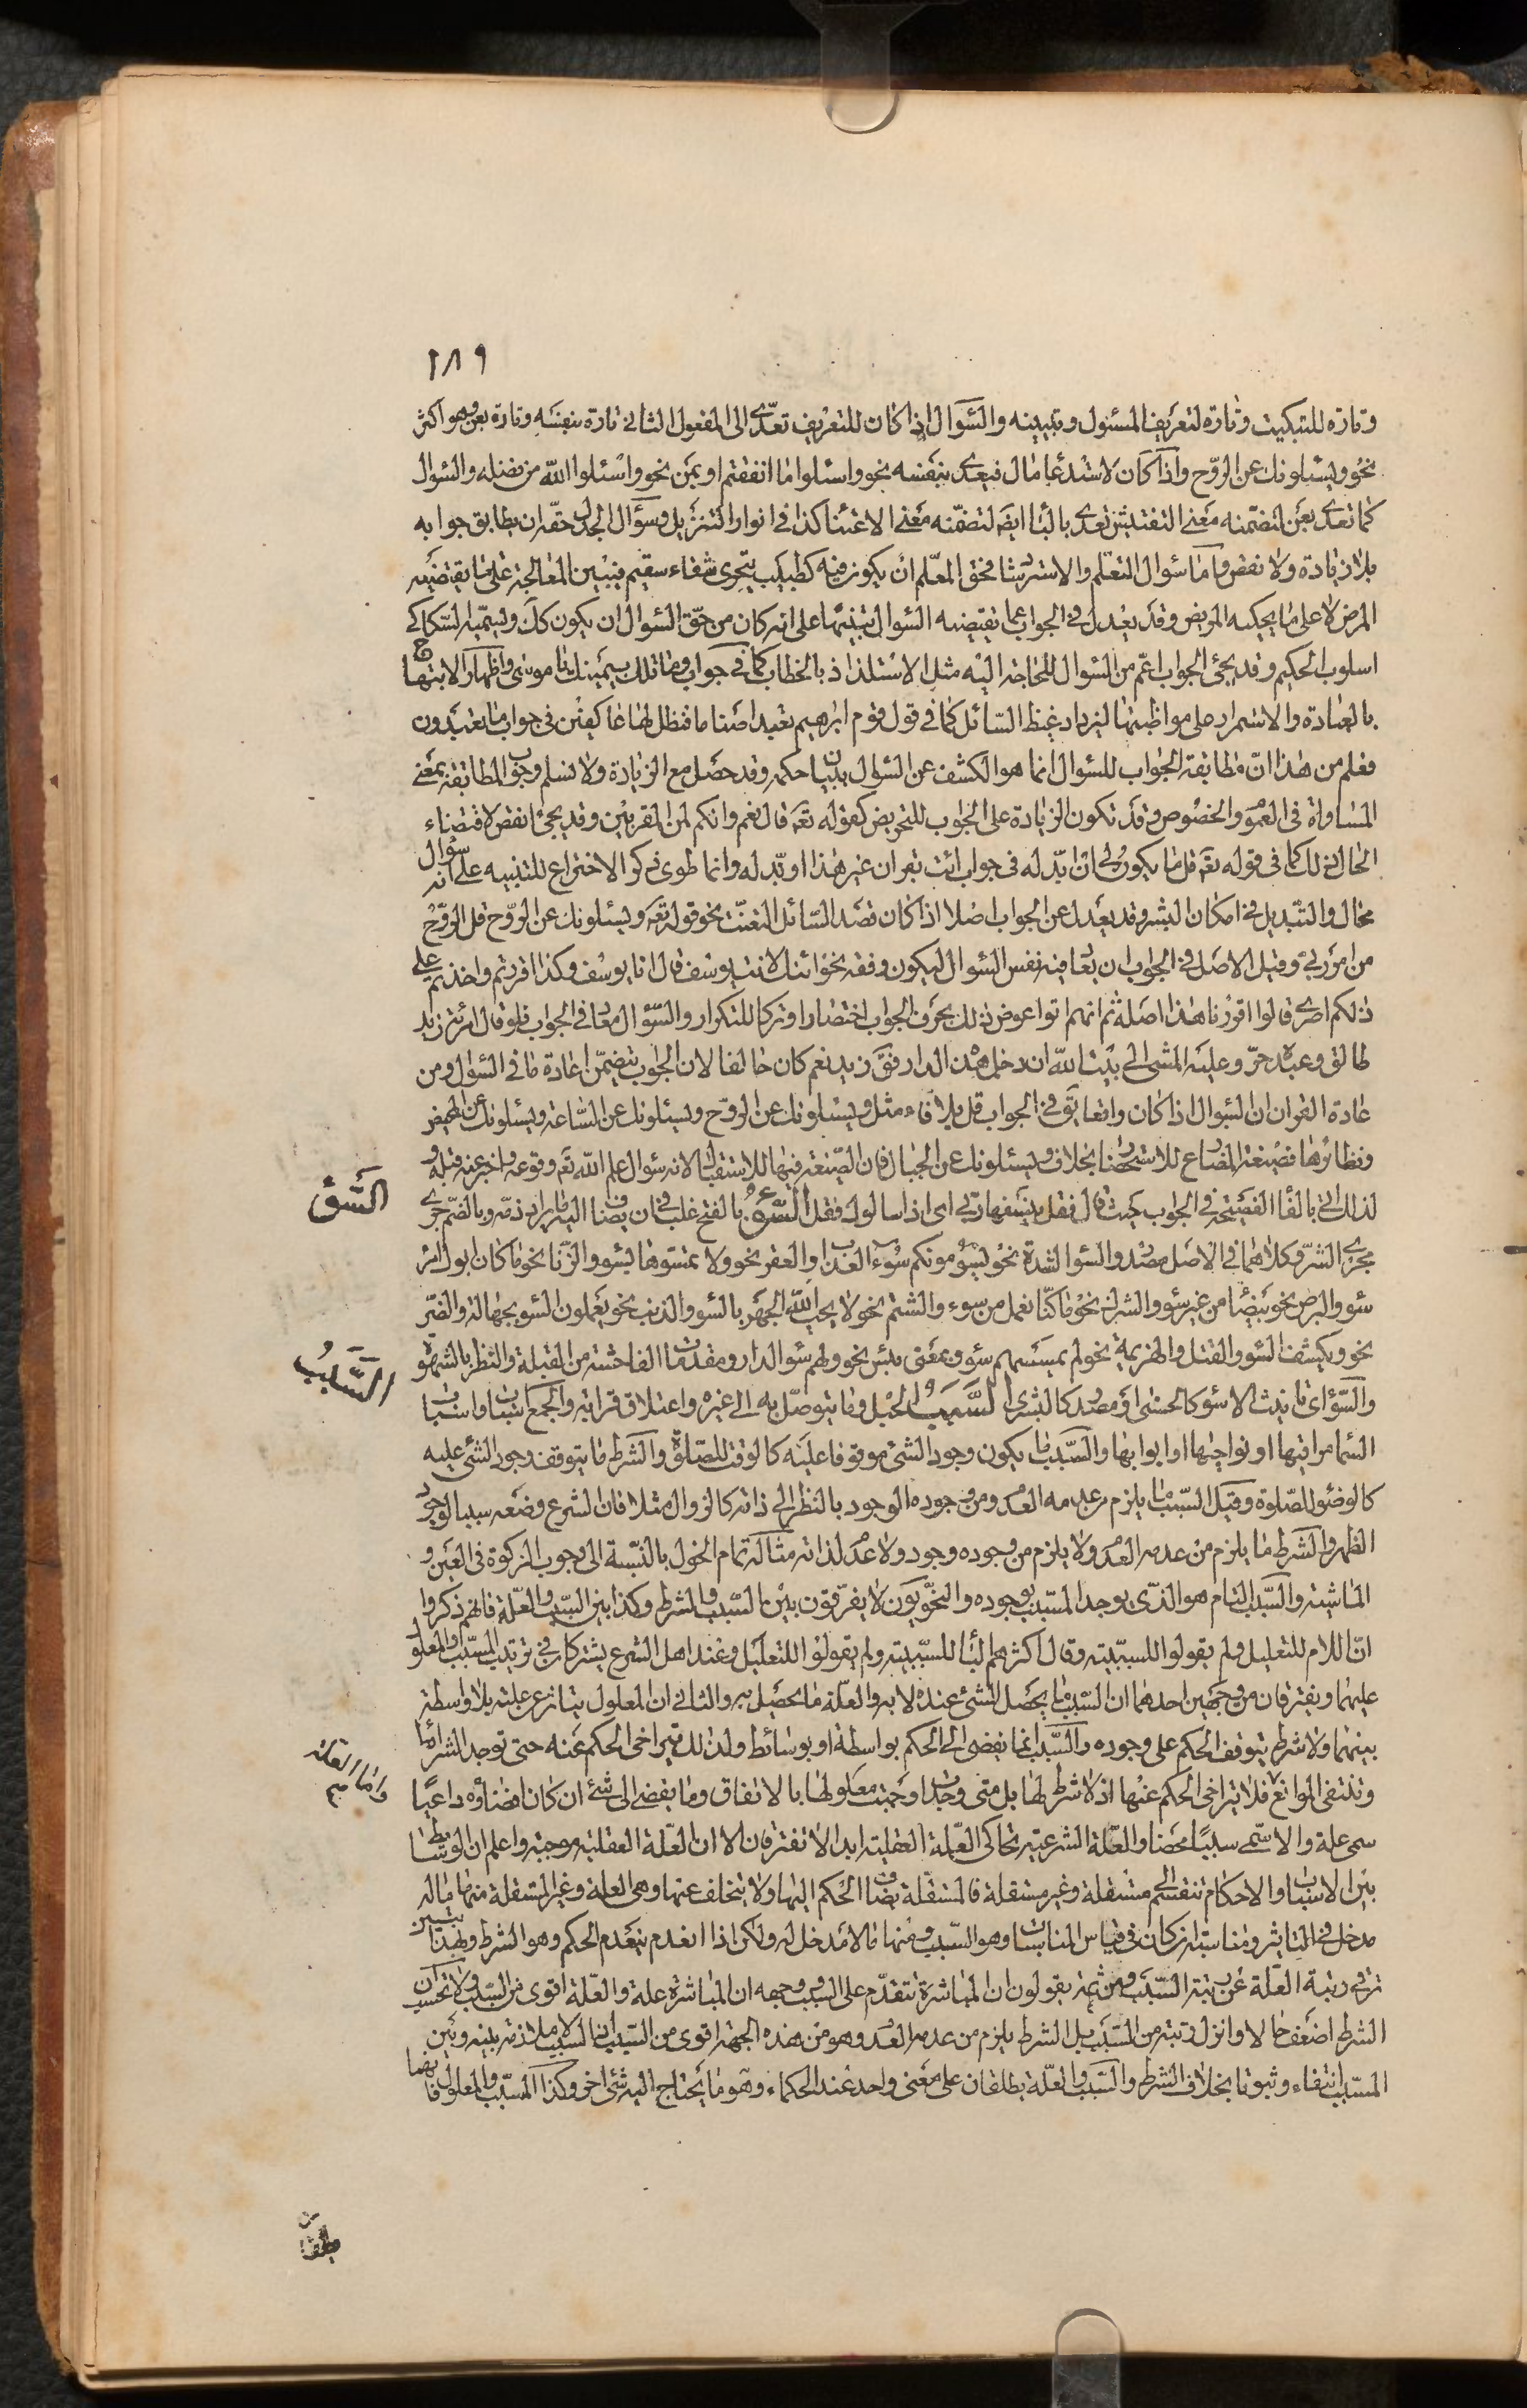 ١٨٩
وتارة للتبكيت وتارة لتعريف المسئول وتبيينه والسؤال اذا كان للتعريف تعدّى الى المفعول الثانى تارة بنفسه وتارة بعن وهو اكثر
نحو ويسئلونك عن الروح واذا كان لاستدعا مال فيعدى بنفسه نحو واسئلوا ما انفقتم او بمن نحو واسئلوا الله من فضله والسؤال
كما تعدى بعن لتضمنه معنى التفتيش تعدى بالبا ايضا لتضمنه معنى الاعتنا كذا فى انوار التنزيل وسؤال الجدل حقه ان يطابق جوابه
بلا زيادة ولا نقص واما سؤال التعلم والاسترشاد فحق المعلم ان يكون فيه كطبيب يتحرى شفاء سقيم فيبين المعالجة على ما يقتضيه
المرض لا على ما يحكيه المريض وقد يعدل فى الجواب عما تقتضيه السؤال تنبيها على انه كان من حق السؤال ان يكون كك ويسميه السكاكى
اسلوب الحكيم وقد يجئ الجواب اعم من السؤال للحاجة اليه مثل الاستلذاذ بالخطاب كما فى جواب وما تلك بيمينك يا موسى واظهار الابتهاج
بالعبادة والاستمرار على مواظبتها ليزداد غيظ السائل كما فى قول قوم ابرهيم نعبد اصناما فنظل لها عاكفين فى جواب ما تعبدون
فعلم من هذا ان مطابقة الجواب للسؤال انما هو الكشف عن السؤال ببيان حكمه وقد حصل مع الزيادة ولا نسلم وجوب المطابقة بمعنى
المساواة فى العموم والخصوص وقد تكون الزيادة على الجواب للتحريض كقوله تعه قال نعم وانكم لمن المقربين وقد يجئ انقص لاقتضاء
الحال ذلك كما فى قوله تعه قل ما يكون لى ان ابدله فى جواب ائت بقران غير هذا او بدله وانما طوى ذكر الاختراع للتنبيه على انه سؤال
محال والتبديل فى امكان البشر وقد يعدل عن الجواب اصلا اذا كان قصد السائل التعنت نحو قوله تعه ويسئلونك عن الروح قل الروح
من امر ربى وقيل الاصل فى الجواب ان يعاد فيه نفس السؤال ليكون وفقه نحو ائنك لانت يوسف قال انا يوسف وكذا اقررتم واخذتم على
ذلكم اصرى قالوا اقررنا هذا اصله ثم انهم اتوا عوض ذلك بحرف الجواب اختصارا وتركا للتكرار والسؤال معاد فى الجواب فلو قال امرئة زيد
طالق وعبده حر وعليه المشى الى بيت الله ان دخل هذه الدار فق زيد نعم كان حالفا لان الجواب يتضمن اعادة ما فى السؤال ومن
عادة القران ان السؤال اذا كان واقعا يق فى الجواب قل بلا فاء مثل ويسئلونك عن الروح ويسئلونك عن الساعة ويسئلونك عن المحيض
ونظائرها فصيغة المضارع للاستحضار بخلاف ويسئلونك عن الجبال فان الصيغة فيها للاستقبال لانه سؤال علم الله تعه وقوعه واخبر عنه قبله و
لذلك اتى بالفا الفصيحة فى الجواب حيث قال فقل ينسفها ربى اى اذا سالوك فقل السوء بالفتح غلب فى ان يضاف اليه ما يراد ذمه وبالضم جرى
السوء
مجرى الشر وكلاهما فى الاصل مصدر والسوا الشدة نحو يسومونكم سوء العذاب والعقر نحو ولا تمسوها بسوء والزنا نحو ما كان ابوك امرء
سوء والبرص نحو بيضا من غير سوء والشرك نحو ما كنا نعمل من سوء والشتم نحو لا يحب الله الجهر بالسوء والذنب نحو يعملون السوء بجهالة والضر
نحو ويكشف السوء والقتل والهزيمة نحو لم يمسسهم سوء وبمعنى بئس نحو ولهم سوء الدار ومقدمات الفاحشة من القبلة والنظر بالشهوة
والسؤاى تانيث الاسوء كالحسنى او مصدر كالبشرى السبب الحبل وما يتوصل به الى غيره واعتلاق قرابة والجمع اسباب واسباب
السبب
السما مراقيها او نواحيها او ابوابها والسبب ما يكون وجود الشئ موقوفا عليه كالوقت للصلوة والشرط ما يتوقف وجود الشئ عليه
كالوضوء للصلوة وقيل السبب ما يلزم من عدمه العدم ومن وجوده الوجود بالنظر الى ذاته كالزوال مثلا فان الشرع وضعه سببا لوجود
الظهر والشرط ما يلزم من عدمه العدم ولا يلزم من وجوده وجود ولا عدم لذاته مثاله تمام الحول بالنسبة الى وجوب الزكوة فى العين و
الماشية والسبب التام هو الذى يوجد المسبب بوجوده والنحويون لا يفرقون بين السبب والشرط وكذا بين السبب والعلة فانهم ذكروا
ان اللام للتعليل ولم يقولوا للسببية وقال اكثرهم البا للسببية ولم يقولوا للتعليل وعند اهل الشرع يشتركان فى ترتيب المسبب والمعلول
عليهما ويفترقان من وجهين احدهما ان السبب ما يحصل الشئ عنده لا به والعلة ما يحصل به والثانى ان المعلول يتاثر عن علته بلا واسطة
بينهما ولا شرط يتوقف الحكم على وجوده والسبب انما يفضى الى الحكم بواسطة او بوسائط ولذلك يتراخى الحكم عنه حتى توجد الشرائط
وتنتفى الموانع فلا يتراخى الحكم عنها اذ لا شرط لها بل متى وجدت اوجبت معلولها بالاتفاق وما يفضى الى شئ ان كان افضاؤه داعيا
واما العلة
سمى علة والا سمى سببا محضا والعلة الشرعية تحاكى العلة العقلية ابدا لا تفترقان الا ان العلة العقلية موجبة واعلم ان الوسائط
بين الاسباب والاحكام تنقسم الى مستقلة وغير مستقلة فالمستقلة يضاف الحكم اليها ولا يتخلف عنها وهى العلة وغير المستقلة منها ما له
مدخل فى التاثير ومناسبة ان كان فى قياس المناسبات وهو السبب ومنها ما لا مدخل له ولكن اذا انعدم ينعدم الحكم وهو الشرط وبهذا تبين
ترقى رتبة العلة عن رتبة السبب ومن ثمة يقولون ان المباشرة تتقدم على السبب ووجهه ان المباشرة علة والعلة اقوى من السبب ولا تحسبن ان
الشرط اضعف حالا وانزل رتبة من السبب بل الشرط يلزم من عدمه العدم وهو من هذه الجهة اقوى من السبب اذ السبب لا ملازمة بينه وبين
المسبب انتفاء وثبوتا بخلاف الشرط والسبب والعلة يطلقان على معنى واحد عند الحكماء وهو ما يحتاج اليه شئ اخر وكذا المسبب والمعلول فانهما